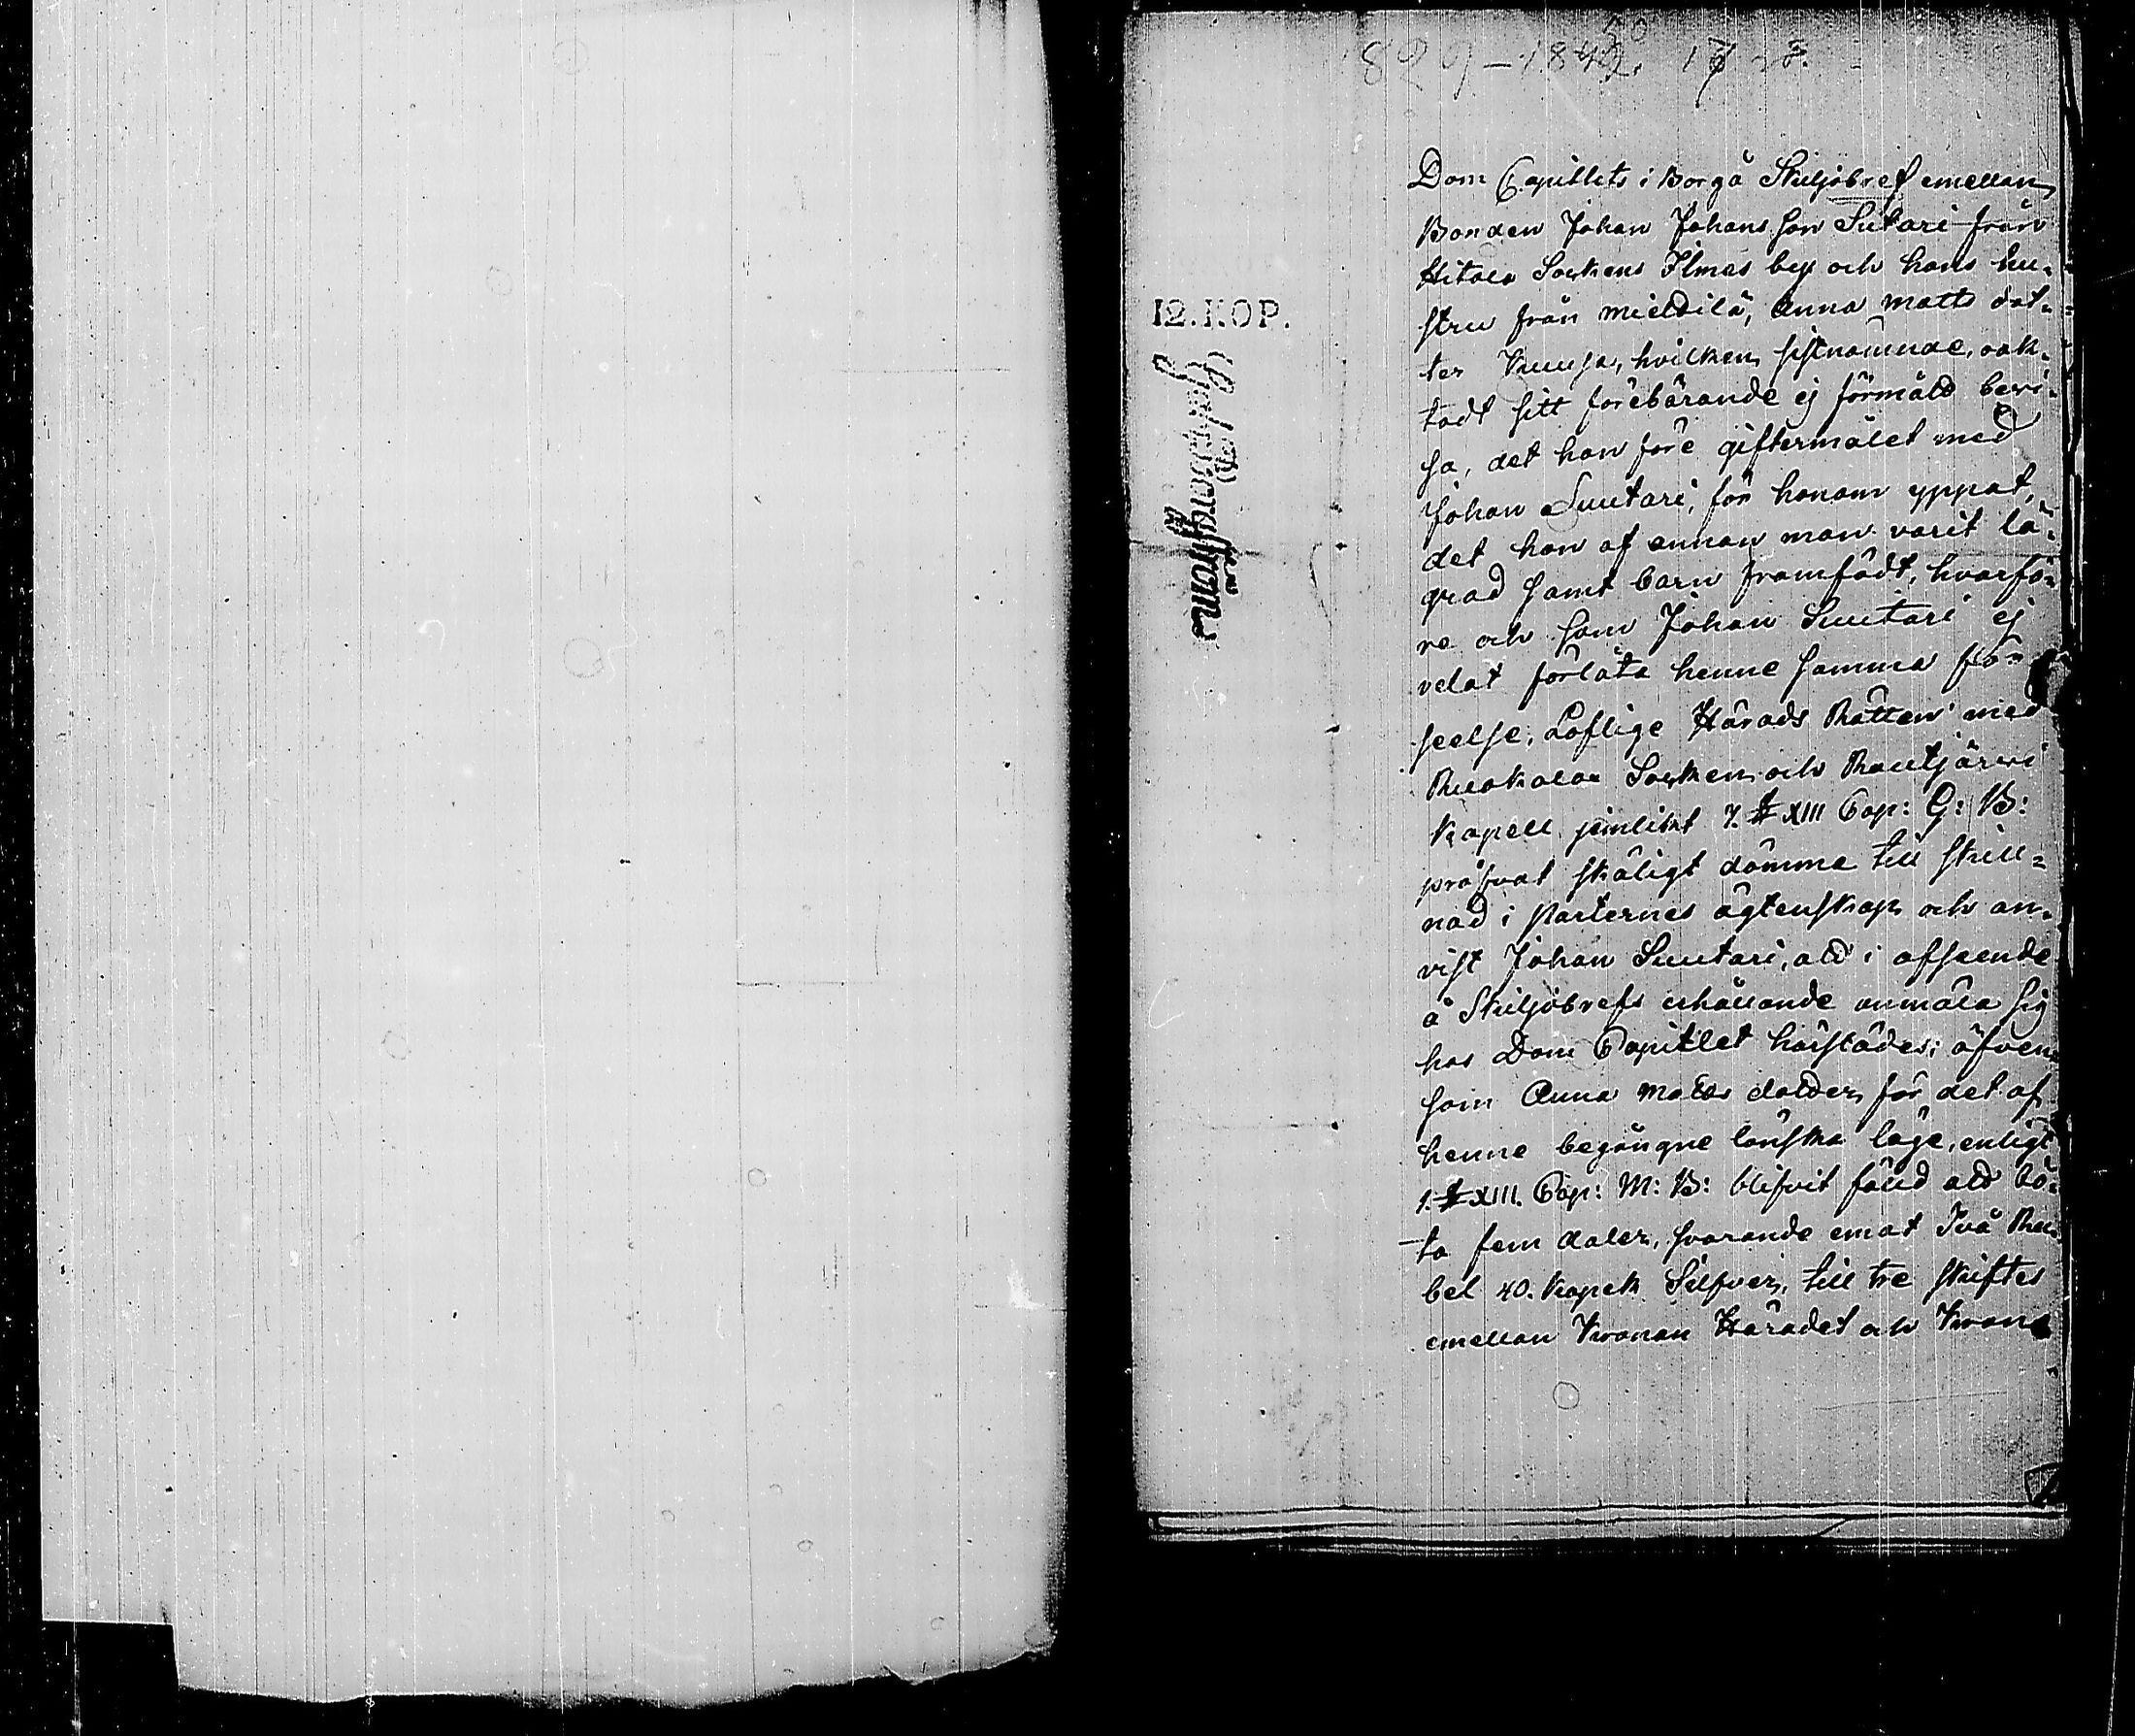 1829-1842. 50 17
12.KOP.
Dom Capitlets i Borgå Skiljobref emellan
Bonden Johan Johans son Sutari från
Hitola Sockens Ilmes by och hans hu-
stru från Mieldilä, Anna Matts dot-
ter Kuusa, hvilken sistnämnde, oak-
tadt sitt förebärande ej förmåld bevi-
sa, det hon före giftermålet med
Johan Suutari, för honom yppat,
det hon af annan man varit lä-
grad samt barn framfödt, hvarfö-
re och som Johan Suutari ej
velat förlåta henne samma för-
seelse, Loflige Härads Rätten med
Ruokolax Socken och Rautjärvi
Kapell jemlikt 7. § XIII Cap: G: B:
pröfvat skäligt dömma till skill-
nad i Parternes ägtenskap och an-
vist Johan Suutari, ald i afseende
å Skiljobrefs erhållande anmäla sig
hos Dom Capitlet härstädes; äfven
som Anna Matts dotter för det af
henne begångne lönska läge, enligt
1. § XIII. Cap: M: B: blifvit fälld ald bö-
ta fem daler, svarande emot Två Ru-
bel 40. Kopek Silfver, till tre skiftes
emellan Kronan Häradet och Kron